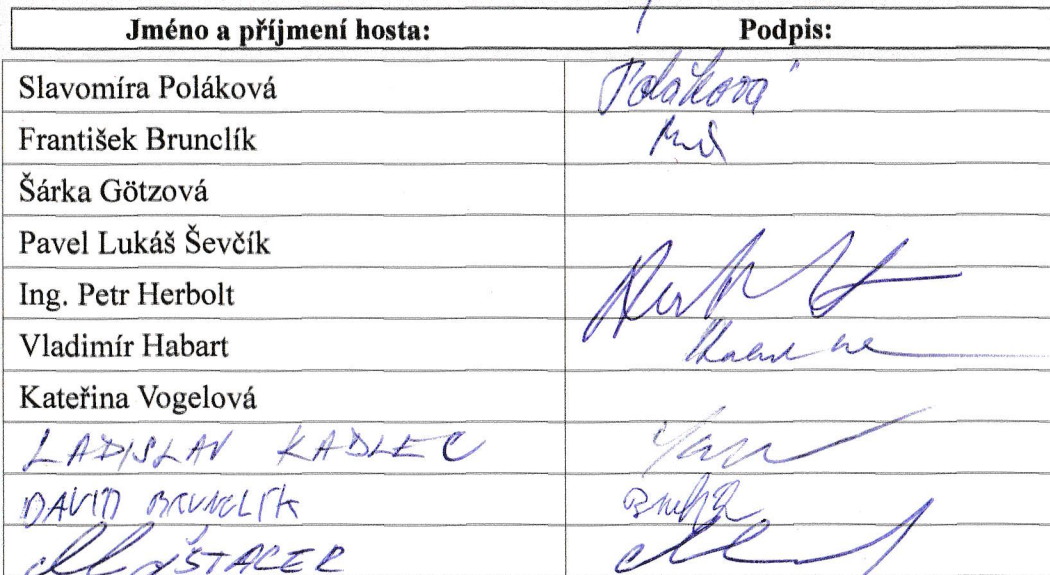 Jméno a příjmení hosta: Podpis:
Slavomíra Poláková Poláková
František Brunclík
Šárka Götzová
Pavel Lukáš Ševčík
Ing. Petr Herbolt
Vladimír Habart
Kateřina Vogelová
LADISLAV KADLEC
DAVID BRUNCLÍK